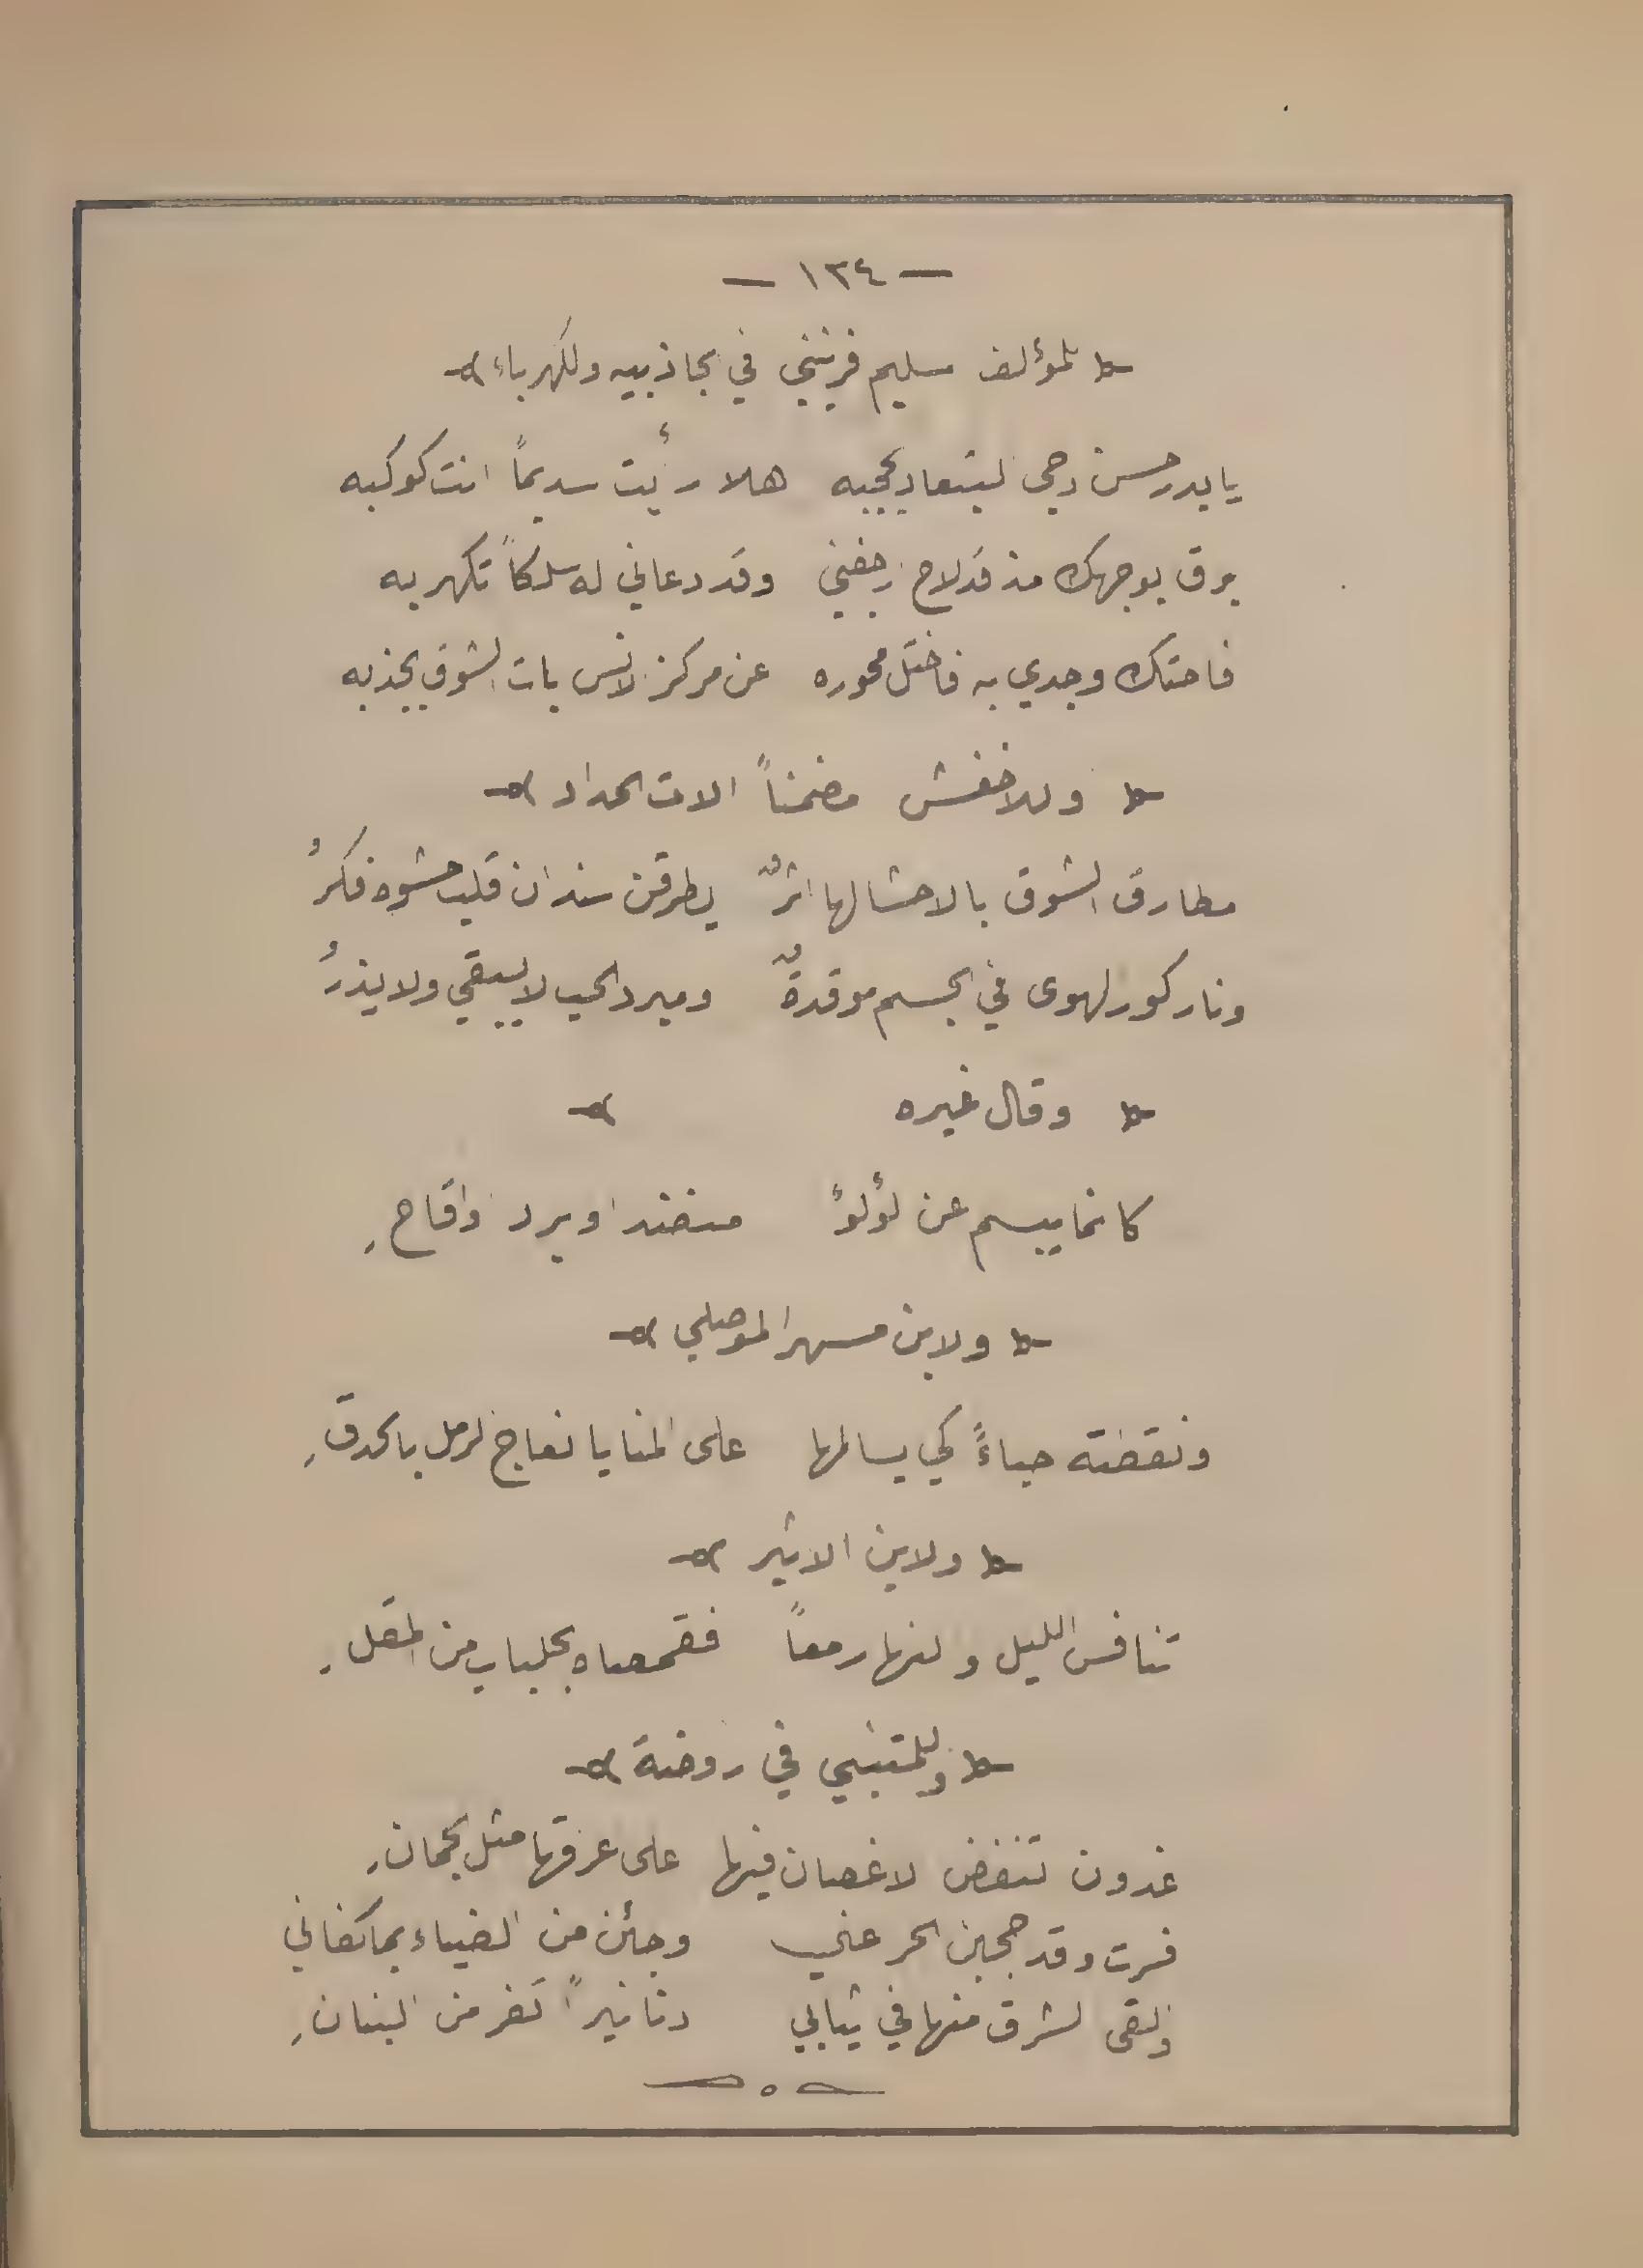 — ١٣٤ —
للمؤلف سليم فرنيني في الجاذبيه والكهرباء
يا بدر حسن دجى الابتعاد يحجبه هلا رأيت سديماً انت كوكبه
برق بوجهك مذ قد لاح ارجفني وقد دعاني له سلكاً تكهربه
فاحتك وجدي به فاختل محوره عن مركز الانس بات الشوق يجذبه
وللاخفش مضمناً الات الحداد
مطارق الشوق بالاحشا لها اثرٌ يطرقن سندان قلب حشوه فكرُ
ونار كور الهوى في الجسم موقدةٌ ومبرد الحب لا يبقي ولا يذرُ
وقال غيره
كانما يبسم عن لؤلؤ منضد او برد او اقاحِ
ولابن مسهر الموصلي
ونقطته حباءً كي يسالمها على المنايا نعاج الرمل بالحدقِ
ولابن الاثير
تنافس الليل والنهار معاً فقمصاه بجلباب من المقلِ
وللمتنبي في روضة
غدون تنفض الاغصان فيها على عرفها مثل الجمانِ
فسرت وقد حجبن الحر عني وجئن من الضياء بما كفاني
والقى الشرق منها في ثيابي دنانيراً تفر من البنانِ